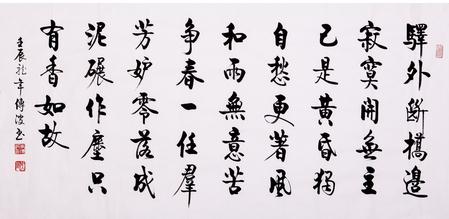 驛外斷橋邊
寂寞開無主
已是黄昏獨
自愁更著風
和雨無意苦
争春一任羣
芳妒零落成
泥碾作塵只
有香如故
壬辰龍年傳波书